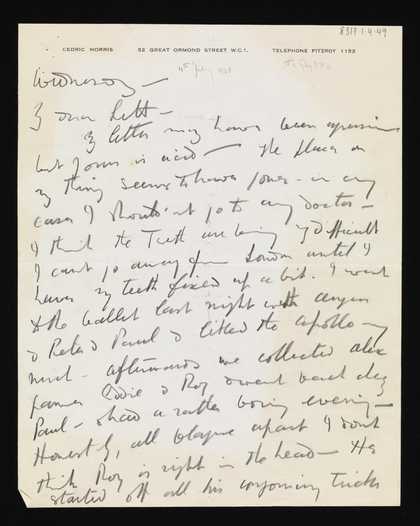 8317.1.4.49
CEDRIC MORRIS 52 GREAT ORMOND STREET W.C.1. TELEPHONE FITZROY 1152
Wednesday —
My dear Lett —
My letter may have been
but yours is acid — The place on
my thing seems to have gone — in any
case I should not go to any doctor —
I think the Teeth are being difficult
I cant go away from London until I
have my teeth fixed up a bit. I went
to the ballet last night with
& Peter & Paul & liked the apollo very
much — afterwards we collected alex
Eddie & Roy & went back
Paul — & had a rather boring evening —
Honestly, all blague apart I dont
think Roy is right in the head — He
started off all his conjoring tricks